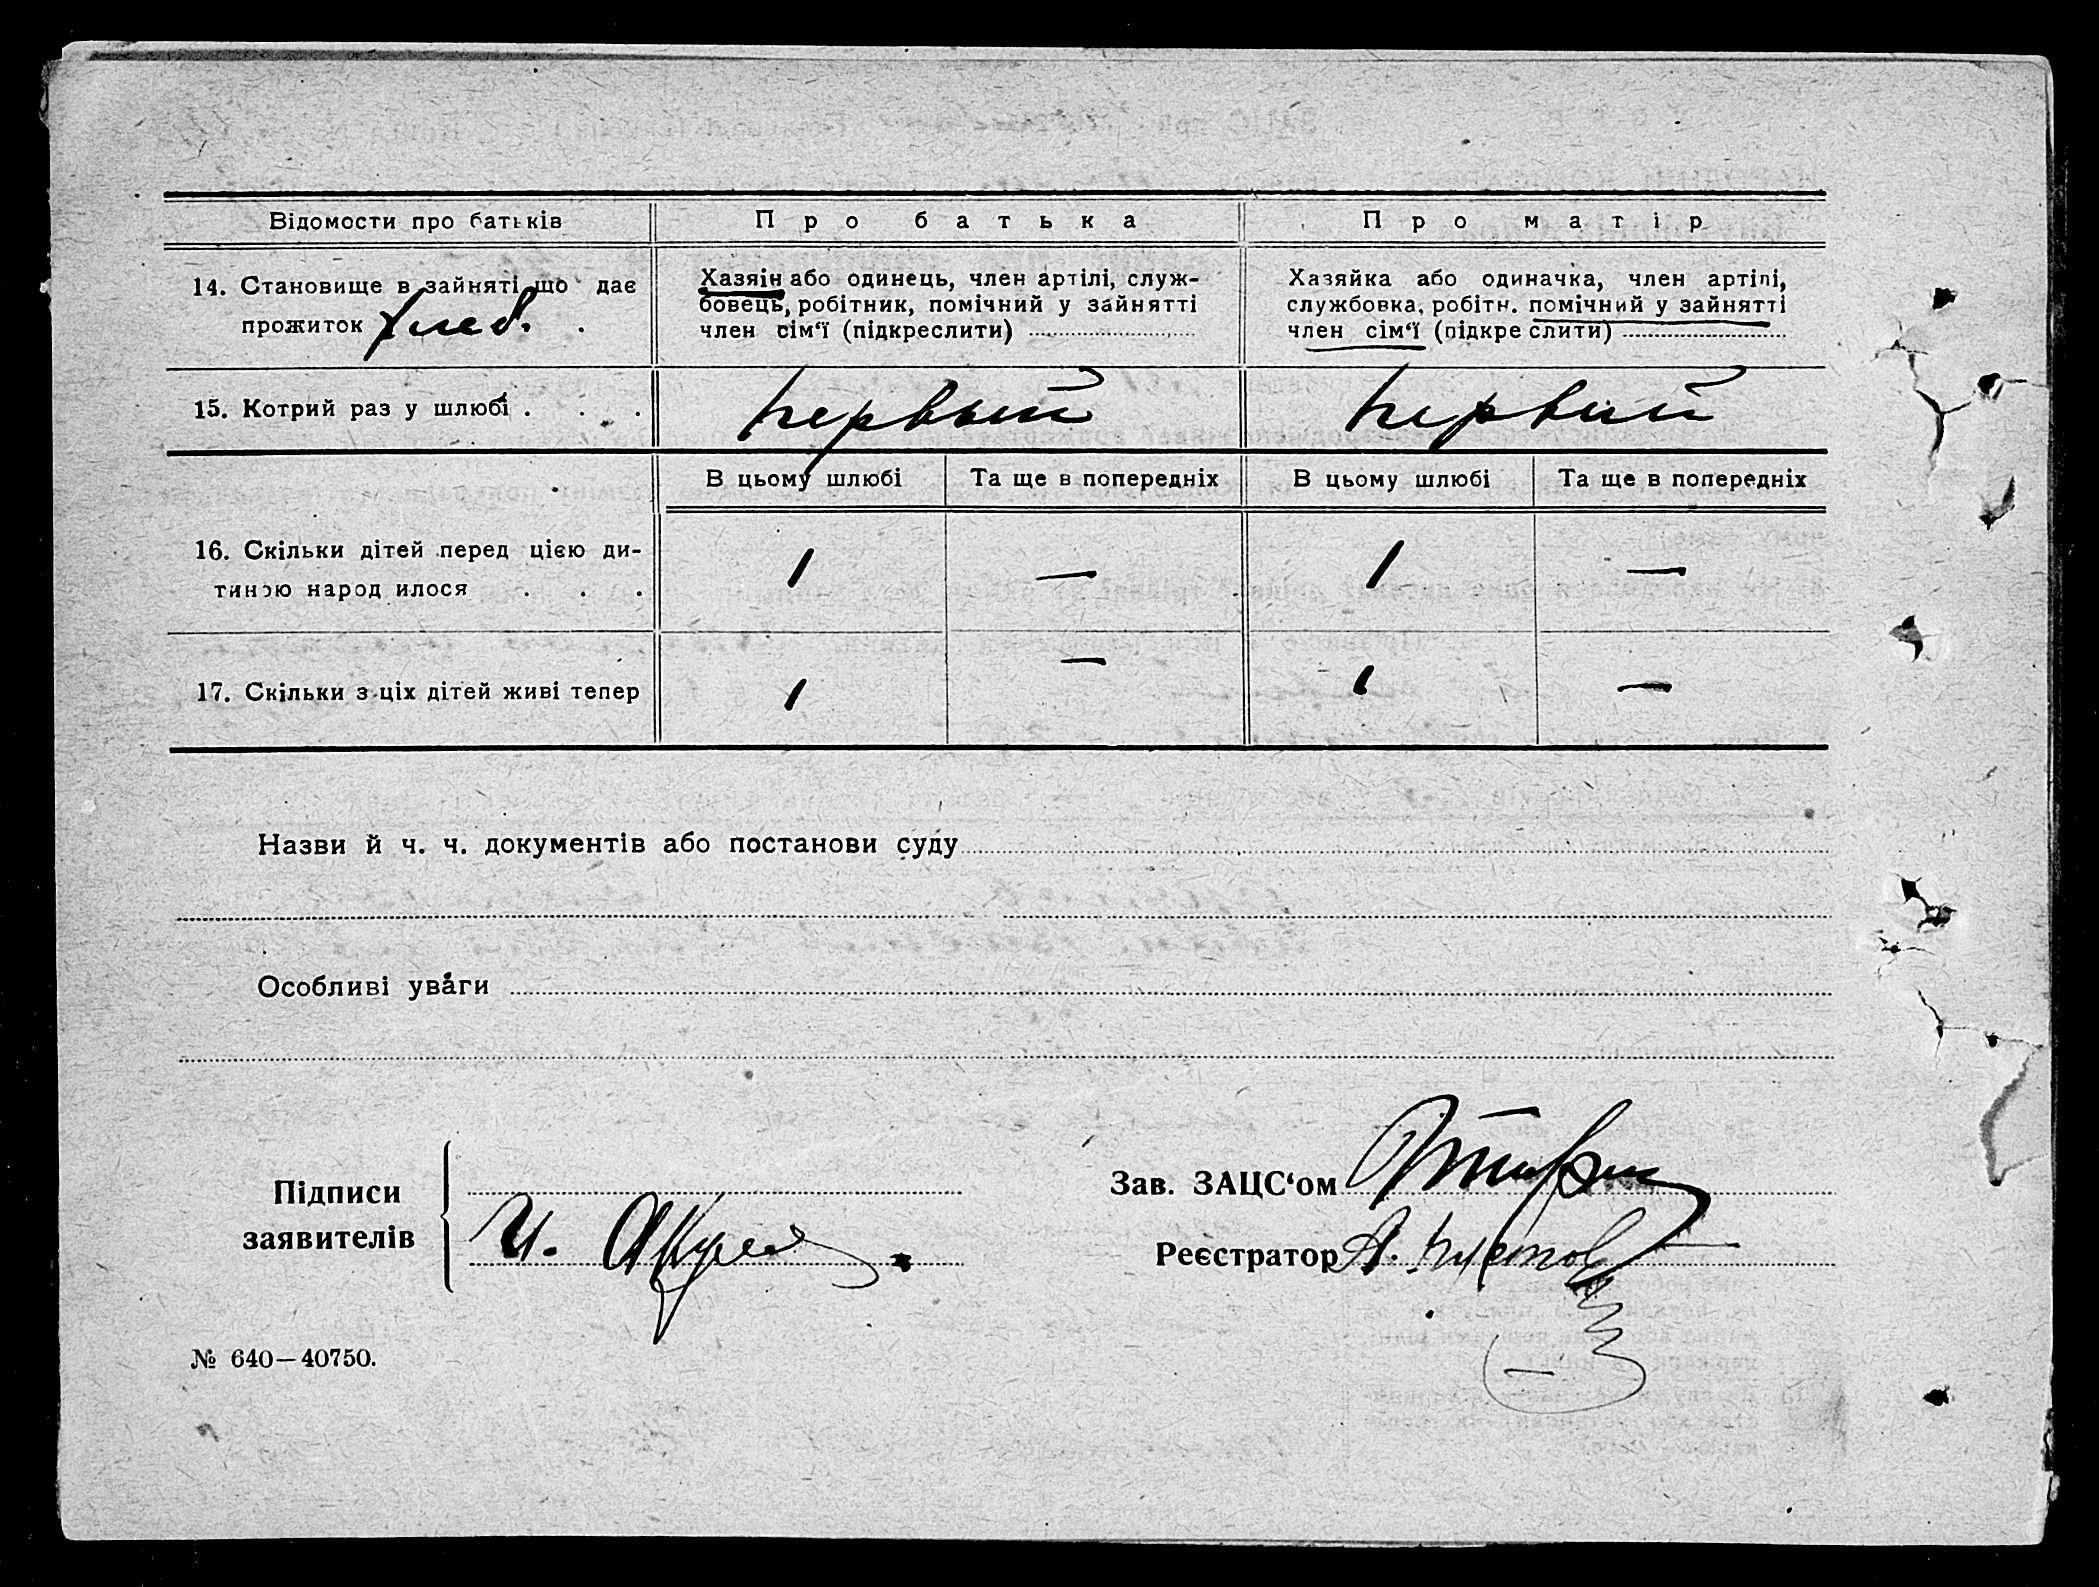 Відомости про батьків
П р о б а т ь к а
П р о м а т і р
14. Становище в зайняті що дає
прожиток хлеб.
Хазяїн або одинець, член артілі, служ-
бовець, робітник, помічний у зайнятті
член сім‘ї (підкреслити)
Хазяйка або одиначка, член артілі,
службовка, робітн. помічний у зайнятті
член сім‘ї (підкреслити)
15. Котрий раз у шлюбі . . .
первый
первый
В цьому шлюбі
Та ще в попередніх
В цьому шлюбі
Та ще в попередніх
16. Скільки дітей перед цією ди-
тиною народилося . . .
1
—
1
—
17. Скільки з ціх дітей живі тепер
1
—
1
—
Назви й ч. ч. документів або постанови суду
Особливі уваги
Підписи
заявителів
И.
Зав. ЗАЦС‘ом
Реєстратор А.
№ 640—40750.